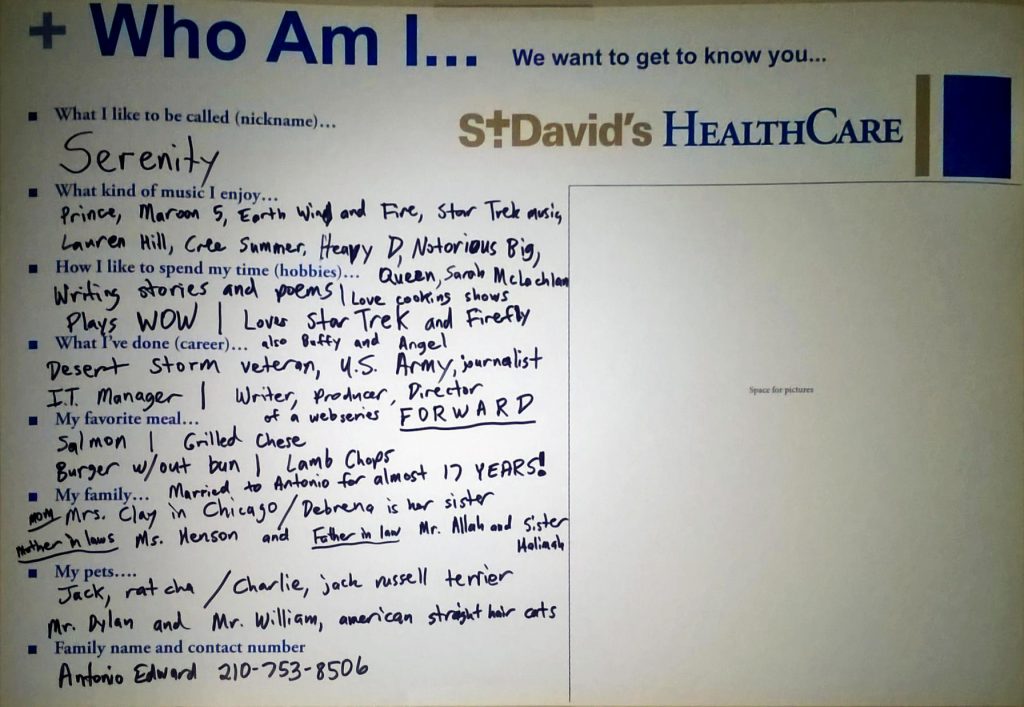 + Who Am I... We want to get to know you...
St David's HEALTHCARE
▪ What I like to be called (nickname)...
Serenity
▪ What kind of music I enjoy...
Prince, Maroon 5, Earth Wind and Fire, Star Trek music,
Lauren Hill, Cree Summer, Heavy D, Notorious Big,
Queen, Sarah McLochlan
▪ How I like to spend my time (hobbies)...
Writing stories and poems | Love cooking shows
Plays WOW | Loves Star Trek and Firefly
also Buffy and Angel
▪ What I've done (career)...
Desert Storm veteran, U.S. Army, journalist
I.T. Manager | Writer, Producer, Director
of a webseries FORWARD
▪ My favorite meal...
Salmon | Grilled Chese
Burger w/out bun | Lamb Chops
▪ My family... Married to Antonio for almost 17 YEARS!
mom Mrs. Clay in Chicago / Debrena is her sister
Mother in laws Ms. Henson and Father in law Mr. Allah and Sister
Halimah
▪ My pets....
Jack, rat cha / Charlie, jack russell terrier
Mr. Dylan and Mr. William, american straight hair cats
▪ Family name and contact number
Antonio Edward 210-753-8506
Space for pictures